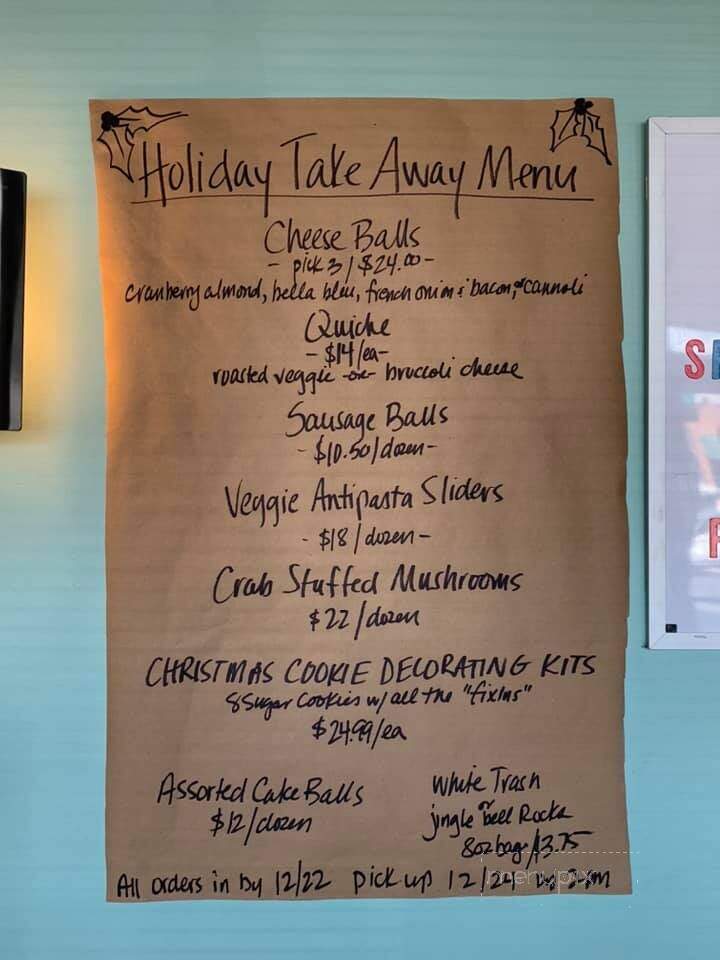 Holiday Take Away Menu
Cheese Balls
- pick 3 / $24.00 -
cranberry almond, bella bleu, french onion & bacon, or cannoli
Quiche
- $14/ea -
roasted veggie -or- broccoli cheese
Sausage Balls
- $10.50/dozen -
Veggie Antipasta Sliders
- $18/dozen -
Crab Stuffed Mushrooms
$22/dozen
CHRISTMAS COOKIE DECORATING KITS
8 Sugar Cookies w/ all the "fixins"
$24.99/ea
Assorted Cake Balls
$12/dozen
White Trash
or
jingle bell Rocks
8oz bag/$3.75
All orders in by 12/22 pick up 12/24 by 2pm
menupix
S